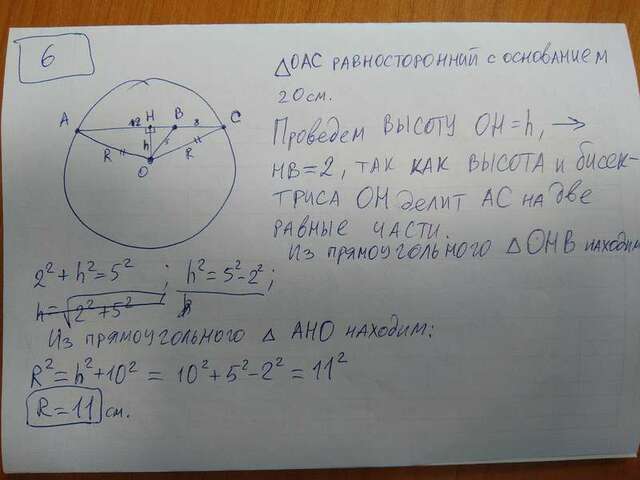 6
△OAC РАВНОСТОРОННИЙ С ОСНОВАНИЕМ
20 см.
A 12 H B 8 C
R h 5 R
O
Проведем ВЫСОТУ OH=h, →
HB=2, ТАК КАК ВЫСОТА И БИСЕК-
ТРИСА OH ДЕЛИТ AC НА ДВЕ
РАВНЫЕ ЧАСТИ.
ИЗ ПРЯМОУГОЛЬНОГО △OHB НАХОДИМ
2²+h²=5² ; h²=5²-2² ;
h=√2²+5² h
ИЗ ПРЯМОУГОЛЬНОГО △ AHO НАХОДИМ:
R²=h²+10² = 10²+5²-2² = 11²
R=11 см.